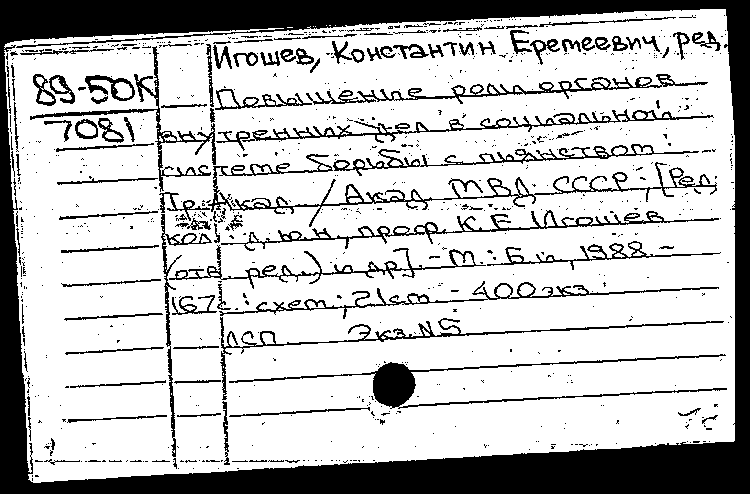 Игошев, Константин Еремеевич, ред.
89-50К
7081
Повышение роли органов
внутренних дел в социальной
системе борьбы с пьянством:
Тр. Акад. / Акад. МВД СССР; [Ред.
кол.: д.ю.н., проф. К.Е. Игошев
(отв. ред.) и др]. - М.: Б.и, 1988. -
167с.: схем.; 21 см. - 400 экз.
ДСП Экз.N5